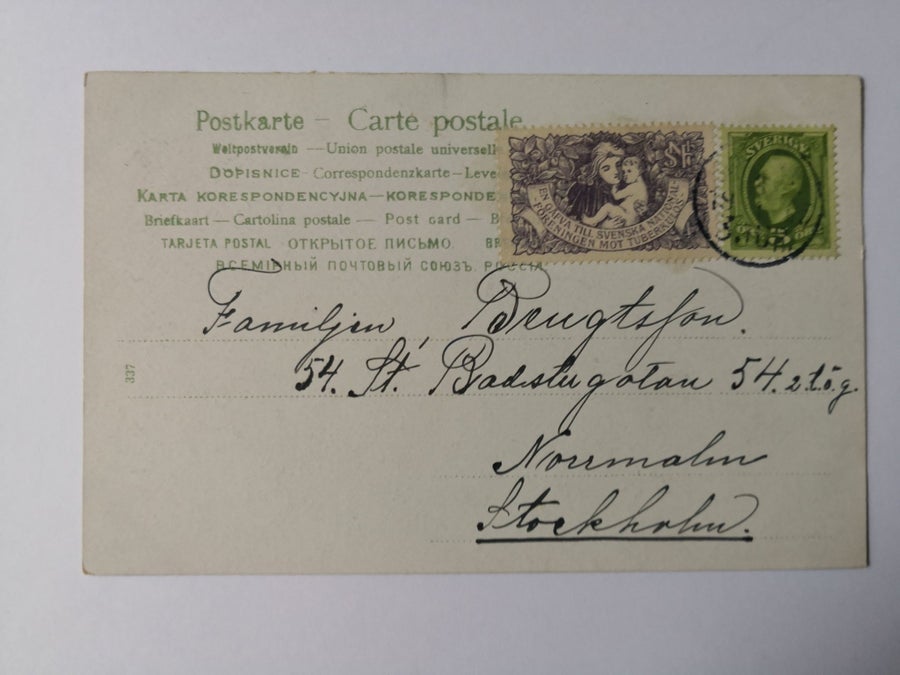 Postkarte – Carte postale
Weltpostverein — Union postale universell
Dopisnice – Correspondenzkarte – Leve
Karta korespondencyjna – Koresponde
Briefkaart – Cartolina postale — Post card –
TARJETA POSTAL ОТКРЫТОЕ ПИСЬМО.
ВСЕМІРНЫЙ ПОЧТОВЫЙ СОЮЗЪ. РОССІЯ.
EN GÅFVA TILL SVENSKA NATIONAL-
FÖRENINGEN MOT TUBERKULOS
SVERIGE
5
Familjen Bengtsson.
54. St. Badstugatan 54. 2 t. ö. g.
Norrmalm
Stockholm.
337